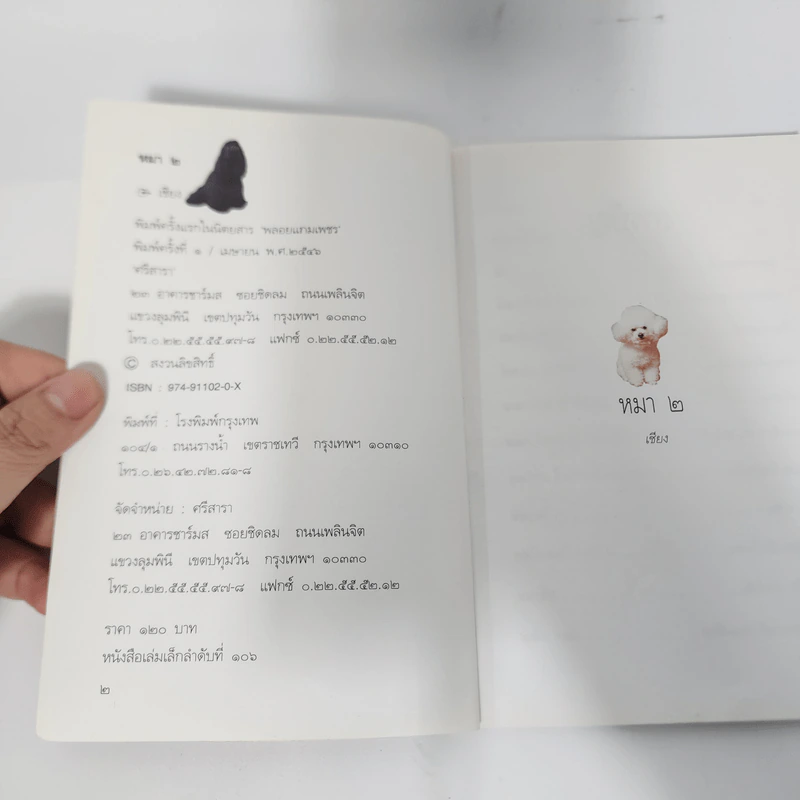 หมา ๒
เชียง
พิมพ์ครั้งแรกในนิตยสาร 'พลอยแกมเพชร'
พิมพ์ครั้งที่ ๑ / เมษายน พ.ศ.๒๕๔๖
'ศรีสารา'
๒๓ อาคารชาร์มส ซอยชิดลม ถนนเพลินจิต
แขวงลุมพินี เขตปทุมวัน กรุงเทพฯ ๑๐๓๓๐
โทร.๐.๒๒.๕๕.๕๕.๙๗-๘ แฟกซ์ ๐.๒๒.๕๕.๕๒.๑๒
© สงวนลิขสิทธิ์
ISBN : 974-91102-0-X
พิมพ์ที่ : โรงพิมพ์กรุงเทพ
๑๐๔/๑ ถนนรางน้ำ เขตราชเทวี กรุงเทพฯ ๑๐๓๑๐
โทร.๐.๒๖.๔๒.๗๒.๘๑-๘
จัดจำหน่าย : ศรีสารา
๒๓ อาคารชาร์มส ซอยชิดลม ถนนเพลินจิต
แขวงลุมพินี เขตปทุมวัน กรุงเทพฯ ๑๐๓๓๐
โทร.๐.๒๒.๕๕.๕๕.๙๗-๘ แฟกซ์ ๐.๒๒.๕๕.๕๒.๑๒
ราคา ๑๒๐ บาท
หนังสือเล่มเล็กลำดับที่ ๑๐๖
๒
หมา ๒
เชียง